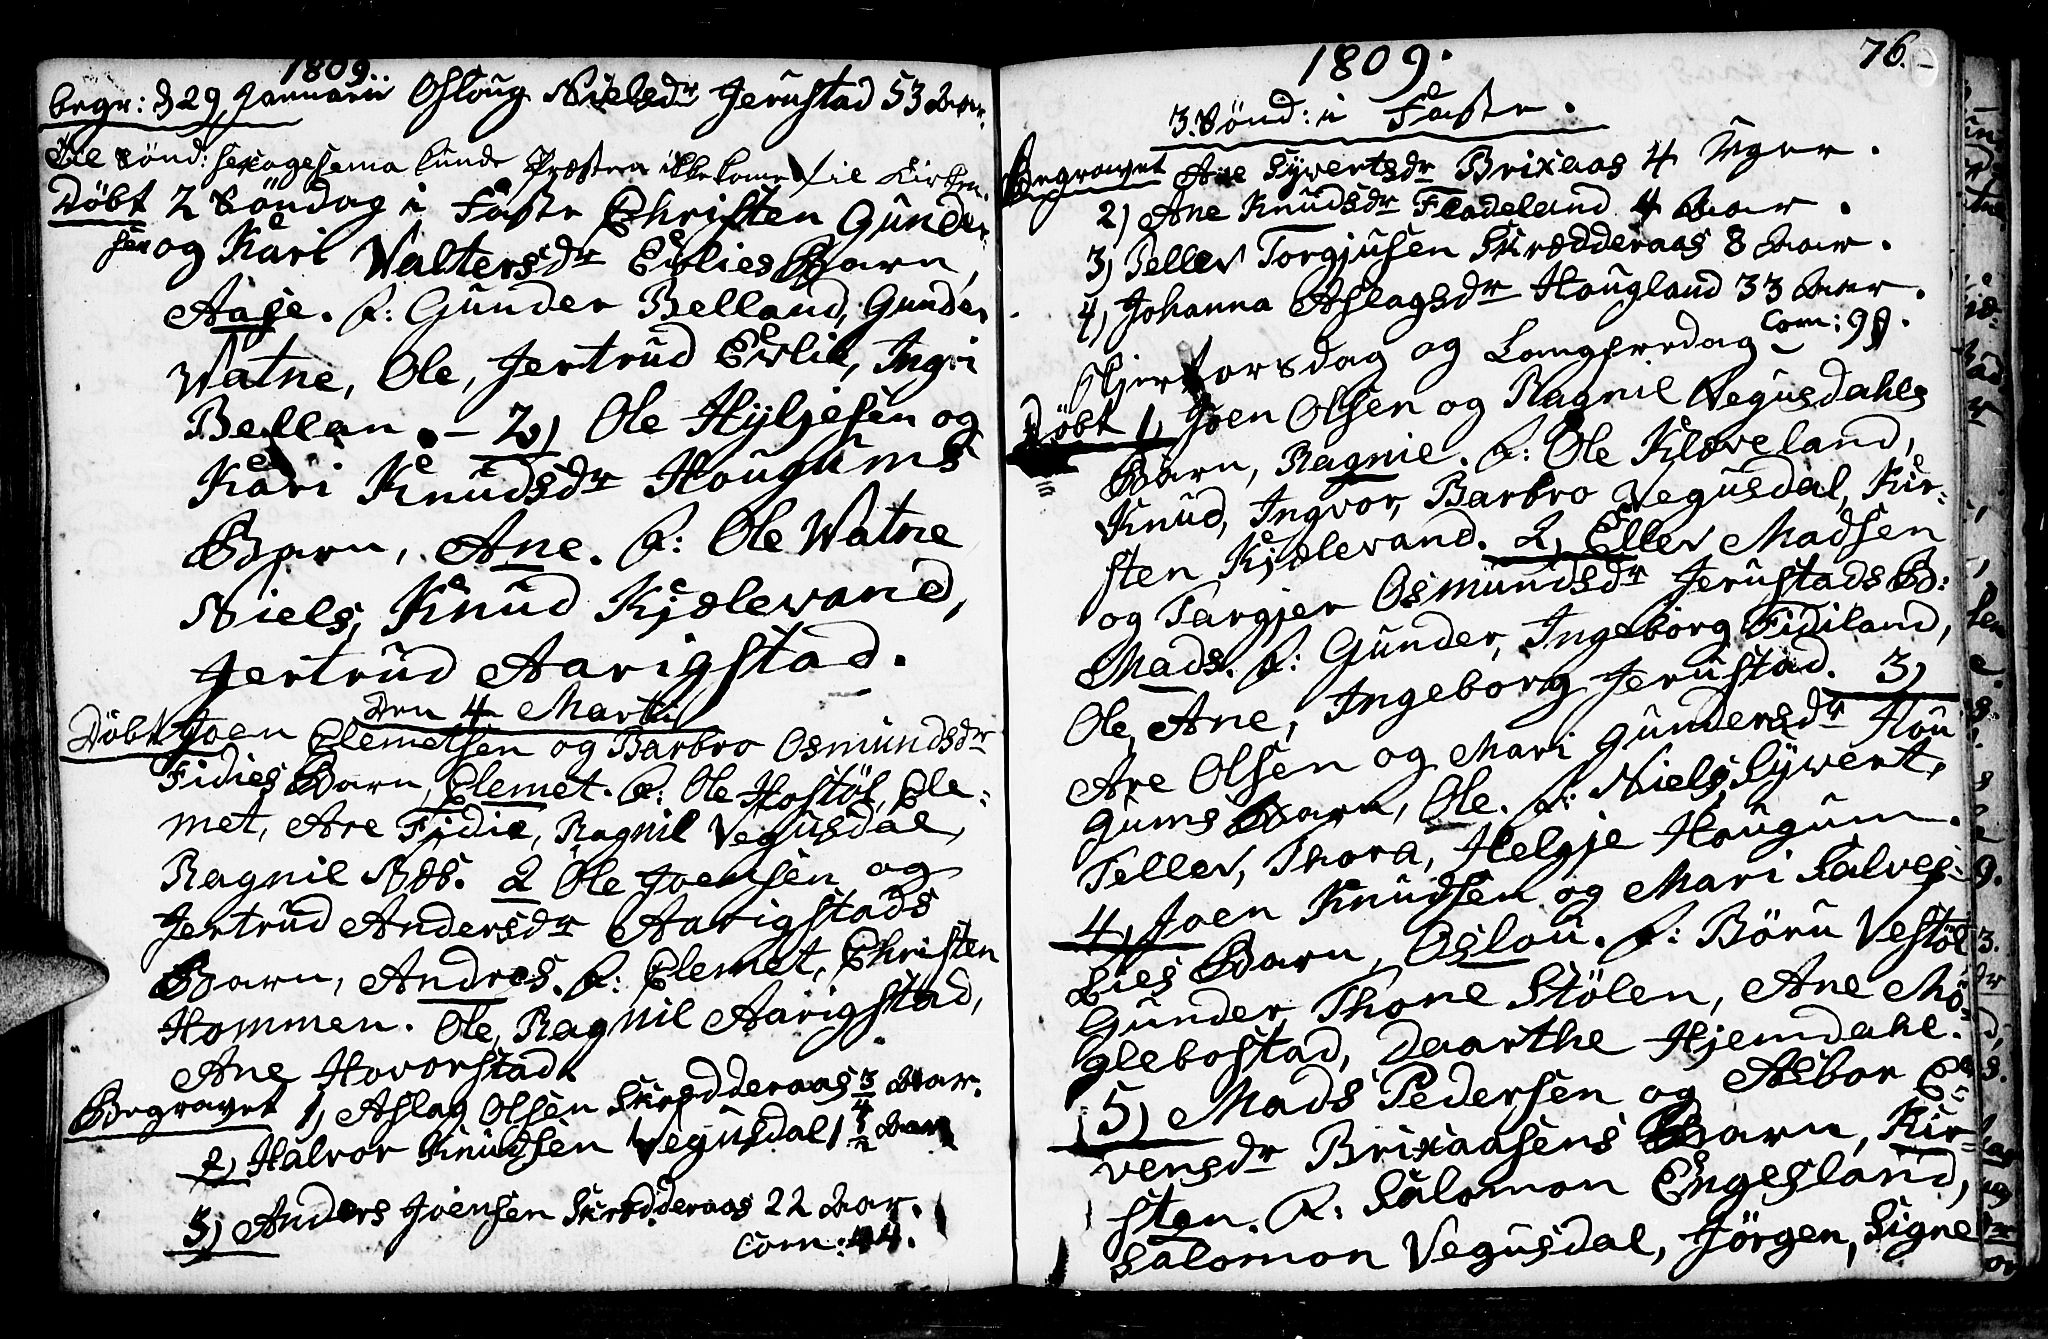 1809.
begr: d 29 Januarii Osloug Nielsdr Jerustad 53 Aar.
Til Sönd: sexagesema kunde Præsten ikke komme til Kirken
Döbt 2 Söndag i Faste Christen Gunder-
sen og Kari Waltersdr Evlies Barn,
Aase. F: Gunder Belland, Gunder
Watne, Ole, Jertrud Evlie, Ingri
Bellan. – 2) Ole Hyljesen og
Kari Knudsdr Hougums
Barn, Ane. F: Ole Watne
Niels, Knud Kjælevand,
Jertrud Aarigstad.
den 4 Martii
Döbt Joen Clemetsen og Barbro Osmundsdr
Fidies Barn, Clemet. F: Ole Hostöl, Cle-
met, Are Fidie, Ragnil Vegusdal,
Ragnil Næs. 2 Ole Joensen og
Jertrud Andersdr Aarigstads
Barn, Andres. F: Clemet, Christen
Hommen. Ole, Ragnil Aarigstad,
Ane Hovorstad.
Begravet 1, Aslag Olsen Skrædderaas 3/4 Aar.
2, Halvor Knudsen Vegusdal 1 1/2 Aar
3) Anders Joensen Skrædderaas 22 Aar.
Com: 44.
1809.
76.
3. Sönd: i Faste.
Begravet Ane Sywertsdr Brixaas 4 Uger.
2) Ane Knudsdr Fladeland 4 Aar.
3) Tellev Torgjusen Skrædderaas 8 Aar.
4, Johanna Aslagsdr Hougland 33 Aar.
Com: 99.
Skjertorsdag og Langfredag
Döbt 1, Joen Olsen og Ragnil Vegusdahls
Barn, Ragnil. F: Ole Klæveland,
Knud, Ingvor, Barbro Vegusdal, Kir-
sten Kjælevand. 2, Ellev Madsen
og Targjer Osmundsdr Jerustads B:
Mads. F: Gunder, Ingeborg Fidiland,
Ole, Ane, Ingeborg Jerustad. 3)
Are Olsen og Mari Gundersdr Hou
gums Barn, Ole. F: Niels, Sywert,
Tellev, Thora, Helgje Hougum.
4, Joen Knudsen og Mari Salves-
Lies Barn, Oslou. F: Böru Vestöl
Gunder Thone Stölen, Ane Mö-
glebostad, Daarthe Hjemdahl.
5) Mads Pedersen og Asbor E-
vensdr Brixaasens Barn, Kir-
sten. F: Salomon Engesland,
Salomon Vegusdal, Jörgen, Signe